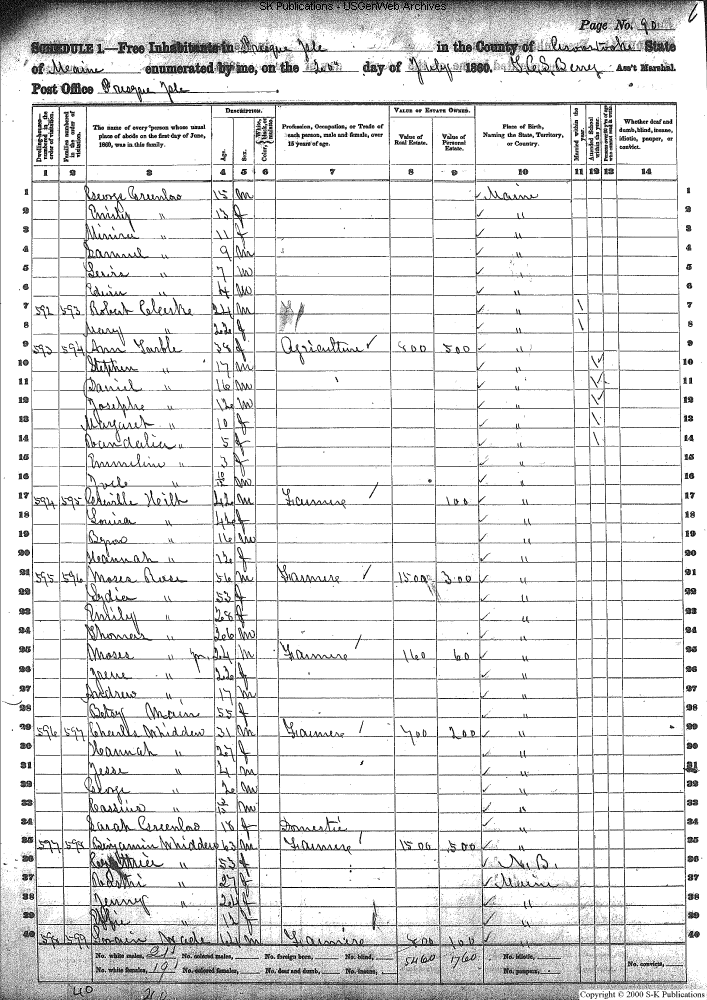 S-K Publications - USGenWeb Archives
Page No. 90
SCHEDULE 1.—Free Inhabitants in Presque Isle in the County of Aroostook State
of Maine enumerated by me, on the day of July 1860. Berry Ass't Marshal.
Post Office Presque Isle
Dwelling-houses—numbered in the order of visitation.
Families numbered in the order of visitation.
The name of every person whose usual place of abode on the first day of June, 1860, was in this family.
DESCRIPTION.
Age.
Sex.
Color, White, black, or mulatto.
Profession, Occupation, or Trade of each person, male and female, over 15 years of age.
VALUE OF ESTATE OWNED.
Value of Real Estate.
Value of Personal Estate.
Place of Birth, Naming the State, Territory, or Country.
Married within the year.
Attended School within the year.
Persons over 20 y'rs of age who cannot read & write.
Whether deaf and dumb, blind, insane, idiotic, pauper, or convict.
1 2 3 4 5 6 7 8 9 10 11 12 13 14
1 George Greenlao 15 m Maine 1
2 Emily " 13 f " 2
3 " 11 f " 3
4 Samuel " 9 m " 4
5 Lewis " 7 m " 5
6 Edwin " 4 m " 6
7 592 593 Robert 24 m " 7
8 Mary " 22 f " 8
9 593 594 Ann 38 f Agriculture 500 " 9
10 Stephen " 17 m " 10
11 Daniel " 16 m " 11
12 Josephe " 12 m " 12
13 Margaret " 10 f " 13
14 " 5 f " 14
15 Emmeline " 3 f " 15
16 " m " 16
17 594 595 42 m Farmere 100 " 17
18 Louisa " 42 f " 18
19 Byron " 16 m " 19
20 Hannah " 12 f " 20
21 595 596 Moses Rose 56 m Farmere 1500 300 " 21
22 Lydia " 53 f " 22
23 Emily " 28 f " 23
24 Thomas " 26 m " 24
25 Moses " jr 24 m Farmere 160 60 " 25
26 " 22 f " 26
27 Andrew " 17 m " 27
28 Betsy Main 55 f " 28
29 596 597 Charles Whidden 31 m Farmere 400 200 " 29
30 Hannah " 27 f " 30
31 Jesse " 4 m " 31
32 George " 2 m " 32
33 " m " 33
34 Sarah Greenlao 18 f Domestic " 34
35 597 598 Benjamin Whidden 63 m Farmere 1500 500 " 35
36 " 53 f N. B. 36
37 " 27 f Maine 37
38 Jenney " 24 f " 38
39 Effie " f " 39
40 598 599 Wade m Farmere 100 " 40
No. white males, 21 No. colored males, No. foreign born, No. blind, 5460 1760 No. idiotic, No. convicts,
No. white females, 19 No. colored females, No. deaf and dumb, No. insane, No. paupers,
40
Copyright © 2000 S-K Publications